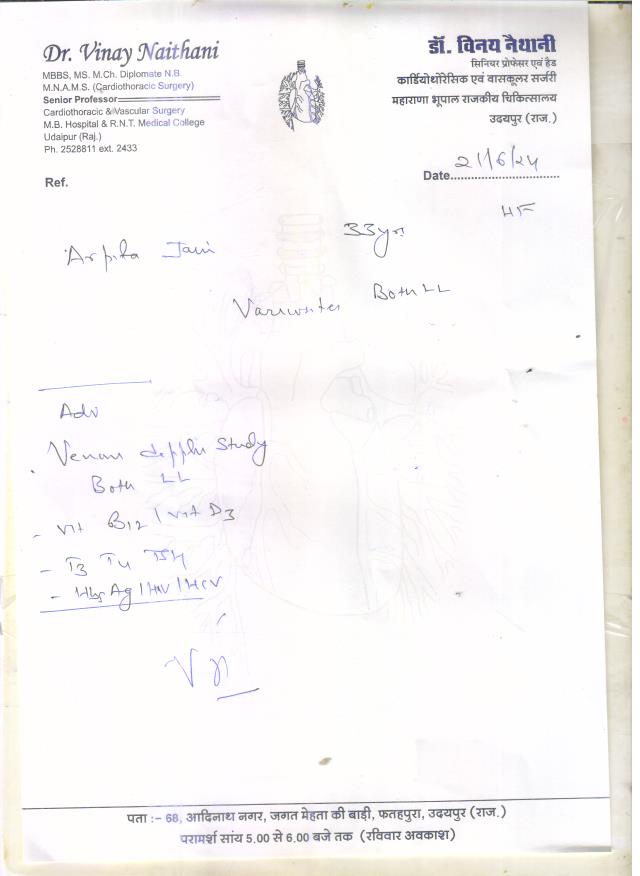 Dr. Vinay Naithani
MBBS, MS. M.Ch. Diplomate N.B.
M.N.A.M.S. (Cardiothoracic Surgery)
Senior Professor
Cardiothoracic & Vascular Surgery
M.B. Hospital & R.N.T. Medical College
Udaipur (Raj.)
Ph. 2528811 ext. 2433
डॉ. विनय नैथानी
सिनियर प्रोफेसर एवं हैड
कार्डियोथोरेसिक एवं वासकूलर सर्जरी
महाराणा भूपाल राजकीय चिकित्सालय
उदयपुर (राज.)
Ref.
Date 21/6/24
Arpita Jain 33yrs
Both LL
Adv
Study
Both LL
- Vit B12 / Vit D3
- T3 T4 TSH
- HbsAg / HIV / HCV
पता :– 68, आदिनाथ नगर, जगत मेहता की बाड़ी, फतहपुरा, उदयपुर (राज.)
परामर्श सांय 5.00 से 6.00 बजे तक (रविवार अवकाश)